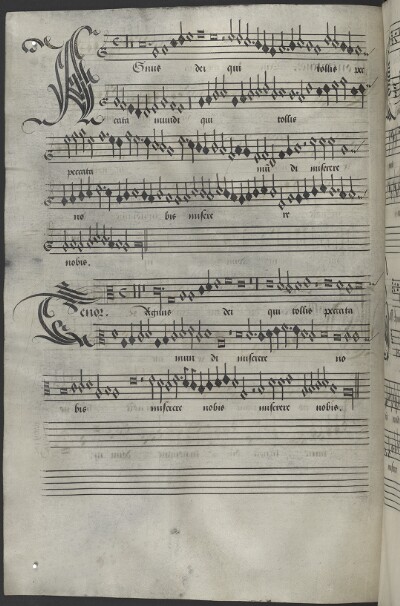 Agnus dei qui tollis pec
cata mundi qui tollis
peccata mun di miserere
no bis misere re
nobis.
Tenor. Agnus dei qui tollis peccata
mun di miserere no
bis miserere nobis miserere nobis.